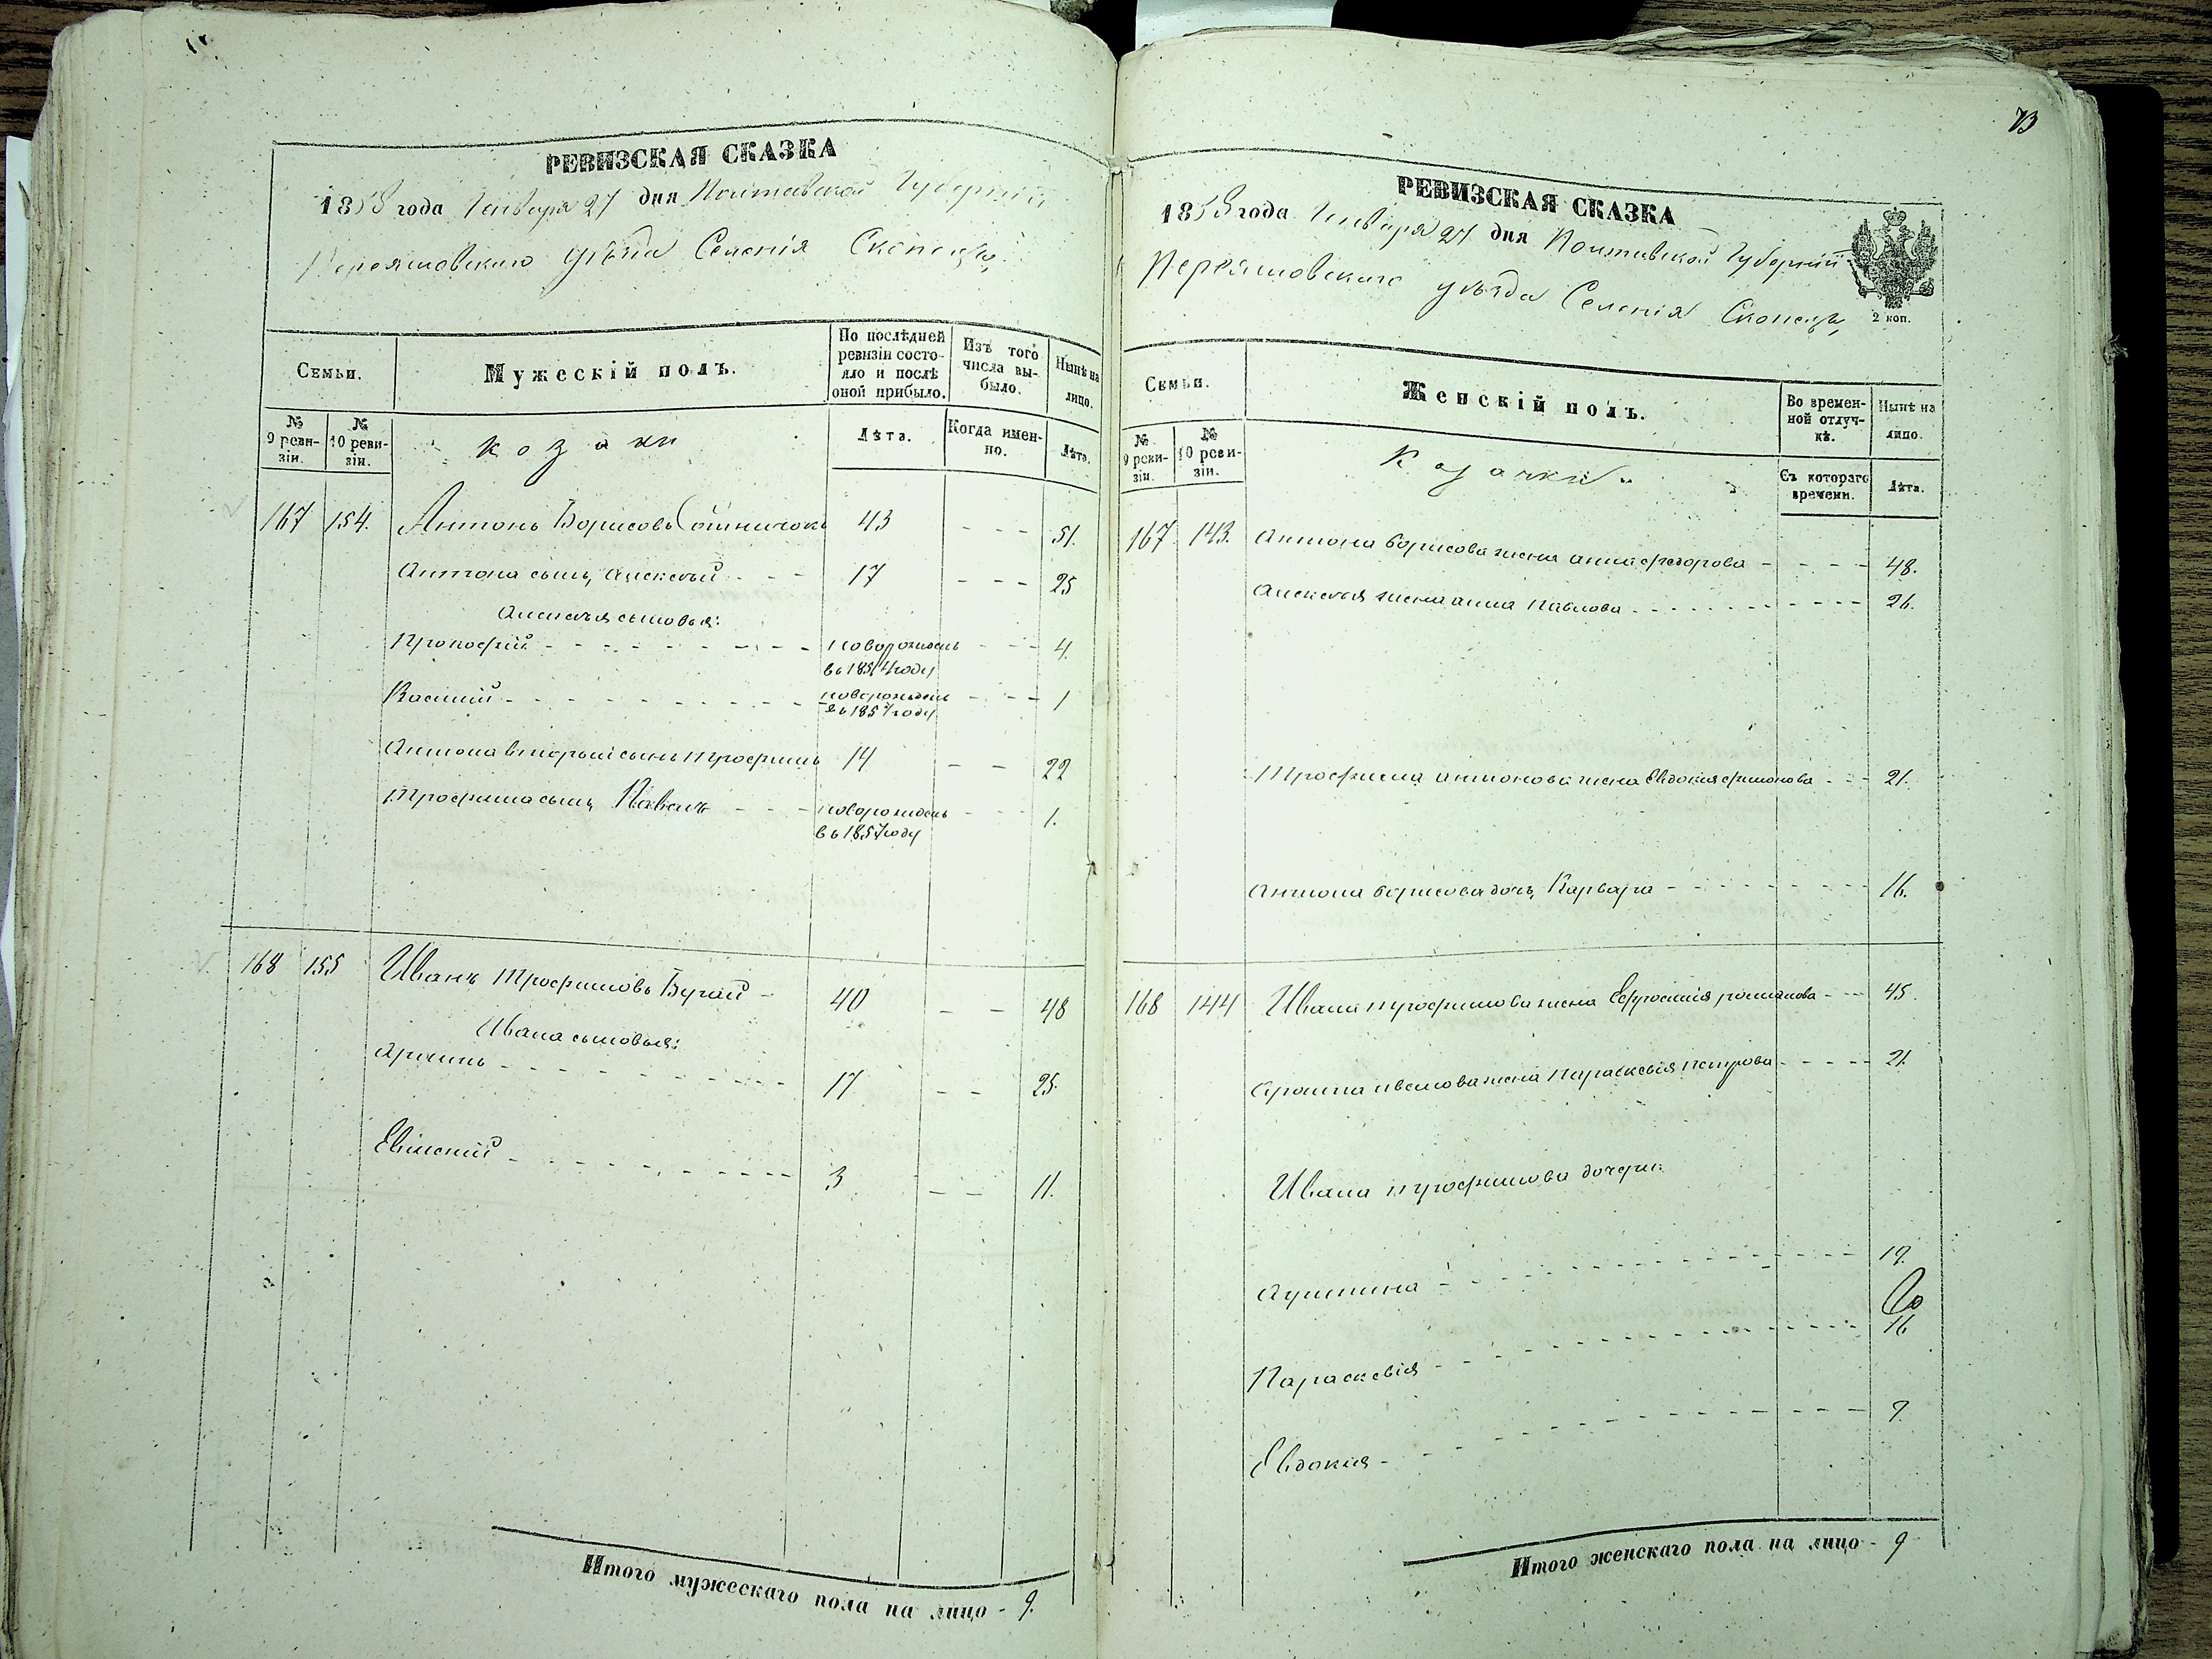 РЕВИЗСКАЯ СКАЗКА
1858 года Генваря 27 дня Полтавской Губерніи
Переяловского уѣзда Селенія Скопецъ
Семьи.
Мужескій полъ.
По послѣдней ревизіи состояло и послѣ оной прибыло.
Изъ того числа выбыло.
Нынѣ на лицо.
№ 9 ревизіи.
№ 10 ревизіи.
козаки
Лѣта.
Когда именно.
Лѣта.
167 154. Антонъ Борисовъ 43 - - - 51.
Антона сынъ Алексѣй - - - 17 - - - 25
Алексѣя сыновья:
Прокофій - - - новорожденъ - - - 4
въ 1854 году
Василій - - - новорожденъ - - - 1
въ 1857 году
Антона вторый сынъ Трофимъ 14 - - 22
Трофима сынъ Павелъ - - - новорожденъ - - - 1.
въ 1857 году
168 155 Иванъ Трофимовъ Бугай - 40 - - 48
Ивана сыновья:
17 - - 25
Евменій - - - 3 - - 11.
Итого мужескаго пола на лицо - 9.
73
РЕВИЗСКАЯ СКАЗКА
1858 года Генваря 27 дня Полтавской Губерніи
Переяловского уѣзда Селенія Скопецъ
2 коп.
Семьи.
Женскій полъ.
Во временной отлучкѣ.
Нынѣ на лицо.
№ 9 ревизіи.
№ 10 ревизіи.
Козачки
Съ котораго времени.
Лѣта.
167 143. Антона Борисова жена Анна Федорова - - - - 48.
Алексѣя жена Анна Павлова - - - 26.
Трофима Антонова жена Евдокия Филонова - - - 21.
Антона Борисова дочь Варвара - - - 16.
168 144 Ивана Трофимова жена Ефросинія Романова - - - 45.
Ивановажена Параскевія Петрова - - - - 21.
Ивана Трофимова дочери:
19.
Параскевія - - - 16
Евдокия - - - 9.
Итого женскаго пола на лицо - 9